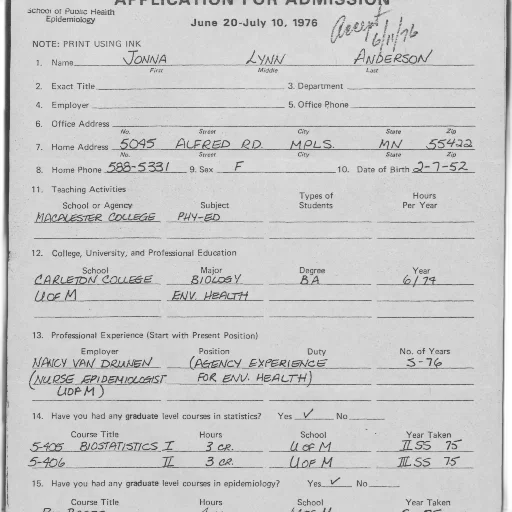 APPLICATION FOR ADMISSION
School of Public Health
Epidemiology
June 20-July 10, 1976
Accept
6/11/76
NOTE: PRINT USING INK
1. Name JONNA LYNN ANDERSON
First Middle Last
2. Exact Title 3. Department
4. Employer 5. Office Phone
6. Office Address
No. Street City State Zip
7. Home Address 5045 ALFRED RD. MPLS. MN 55422
No. Street City State Zip
8. Home Phone 588-5331 9. Sex F 10. Date of Birth 2-7-52
11. Teaching Activities
School or Agency Subject Types of Students Hours Per Year
MACALESTER COLLEGE PHY-ED
12. College, University, and Professional Education
School Major Degree Year
CARLETON COLLEGE BIOLOGY BA 6/74
U OF M ENV. HEALTH
13. Professional Experience (Start with Present Position)
Employer Position Duty No. of Years
NANCY VAN DRUNEN (AGENCY EXPERIENCE 5-76
(NURSE EPIDEMIOLOGIST FOR ENV. HEALTH)
U OF M)
14. Have you had any graduate level courses in statistics? Yes ✓ No
Course Title Hours School Year Taken
5-405 BIOSTATISTICS I 3 CR. U OF M II SS 75
5-406 II 3 CR. U OF M II SS 75
15. Have you had any graduate level courses in epidemiology? Yes ✓ No
Course Title Hours School Year Taken